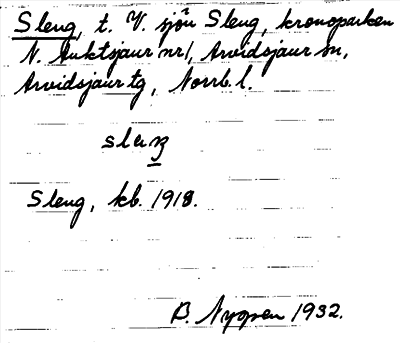 Sleng, t. V. sjön Sleng, kronoparken
N. Auktsjaur nr 1, Arvidsjaur sn,
Arvidsjaur tg, Norrb. l.
sleŋ
Sleng, kb. 1918.
B. Nygren 1932.